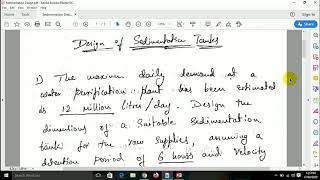 Sedimentation Design.pdf - Adobe Acrobat Reader DC
File Edit View Window Help
Home Tools
Design of Sedimentation Tanks
1) The maximum daily demand at a
water purification plant has been estimated
as 12 Million litres/day. Design the
dimensions of a Suitable Sedimentation
tank for the raw supplies, assuming a
detention period of 6 hours and velocity